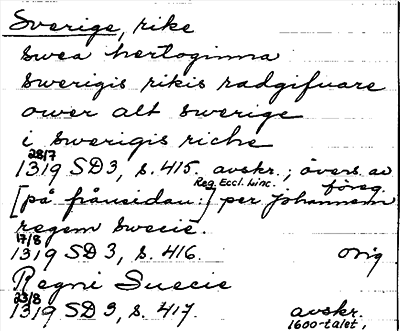 Sverige, rike
swea hertoginna
swerigis rikis radgifuare
ower alt swerige
i swerigis riche
28/7
1319 SD 3, s. 415. avskr.; övers. av föreg.
Reg. Eccl. Linc.
[på frånsidan:] per Johannem
regem swecie.
17/8
1319 SD 3, s. 416. orig
Regni Suecie
23/8
1319 SD 3, s. 417. avskr.
1600-talet,